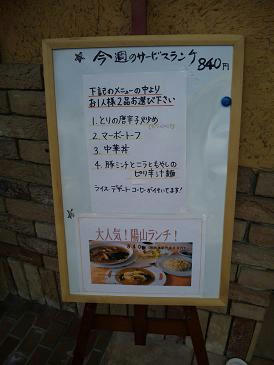 今週のサービスランチ 840円
下記のメニューの中より
お1人様2品お選び下さい
1. とりの唐辛子炒め
2. マーボードーフ
3. 中華丼
4. 豚ミンチとニラともやしの
ピリ辛汁麺
ライス デザート コーヒーが付いてます!
大人気!陽山ランチ!